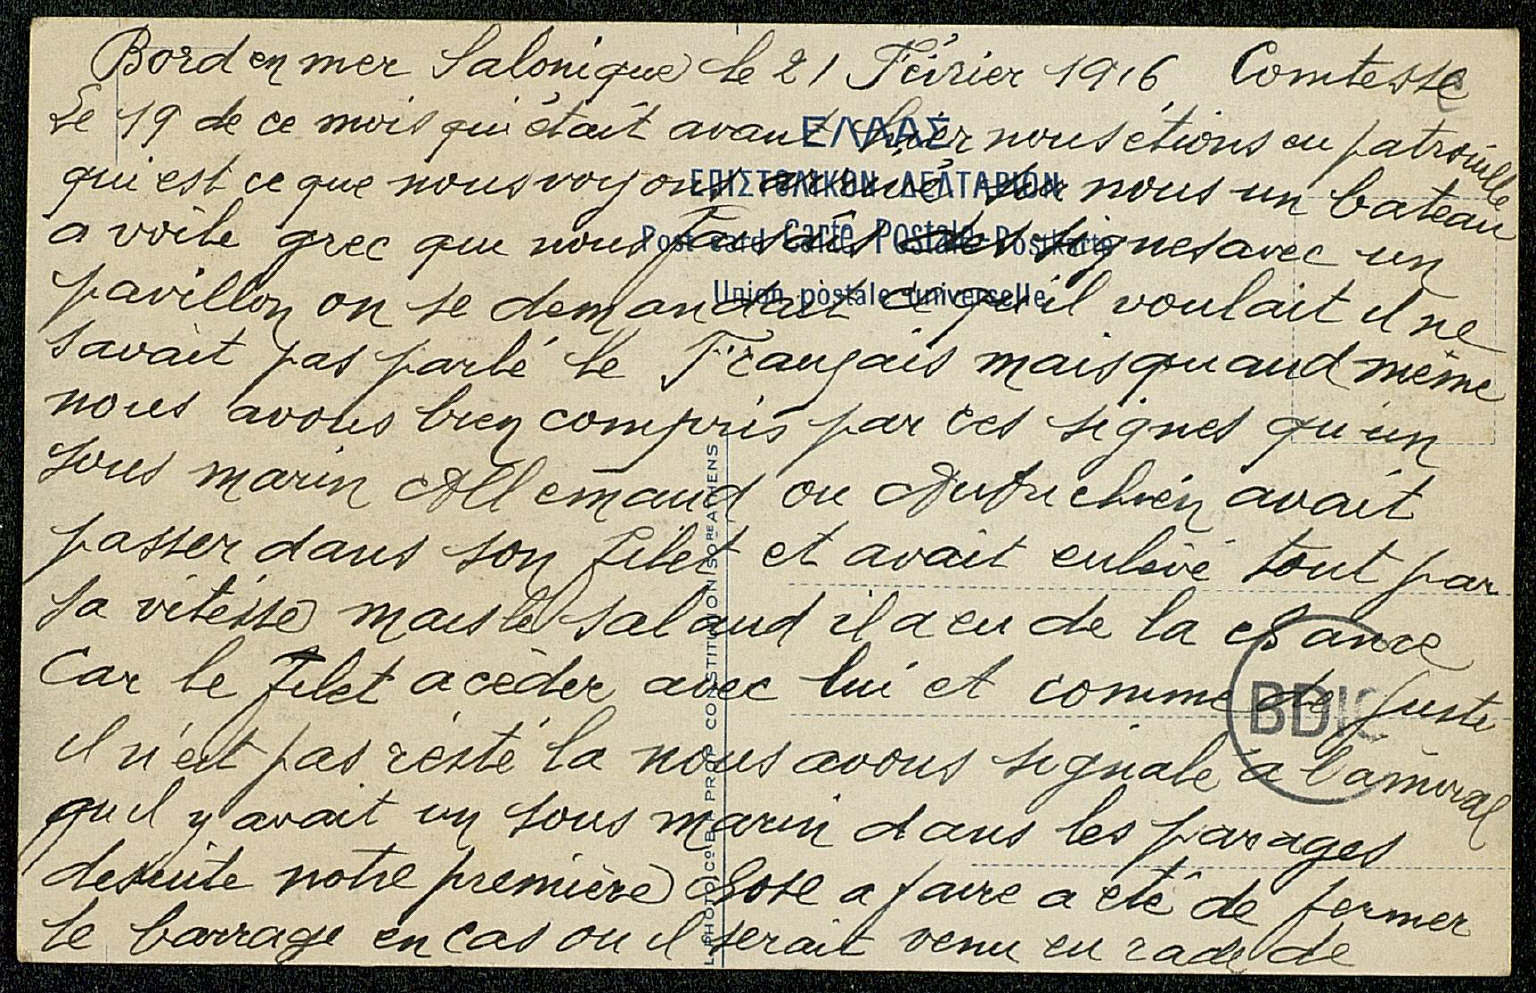 Bord en mer Salonique le 21 Février 1916 Comtesse
Le 19 de ce mois qui était avant hier nous étions en patrouille
qui est ce que nous voyons nous un bateau
a voile grec que nous faisais des signes avec un
pavillon on se demandait ce qu'il voulait il ne
savait pas parlé le Français mais quand même
nous avons bien compris par ces signes qu'un
sous marin Allemand ou Autrichien avait
passer dans son filet et avait enlevé tout par
sa vitesse mais le salaud il a eu de la chance
Car le filet a céder avec lui et comme de juste
il n'est pas resté la nous avons signale a l'amiral
qu'il y avait un sous marin dans les parages
desuite notre première chose a faire a été de fermer
le barrage en cas ou il serait venu en rade de
ΕΛΛΑΣ
ΕΠΙΣΤΟΛΙΚΟΝ ΔΕΛΤΑΡΙΟΝ
Post card Carte Postale Postkarte
Union postale universelle
PHOTO Co B. PROP CONSTITUTION SQRE ATHENS
BDIC